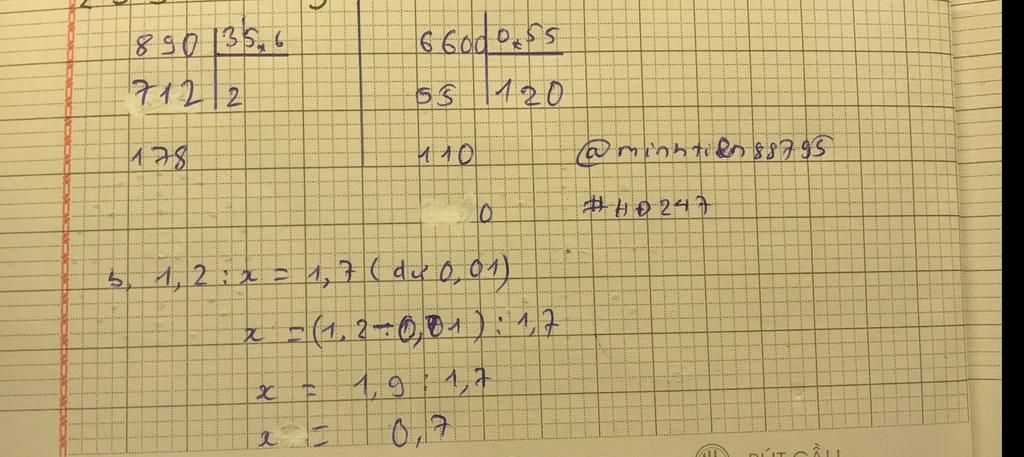 890 35,6
6600 0,55
712 2
55 120
178
110
@minhtien88795
0
#HD247
b, 1,2 : x = 1,7 (dư 0,01)
x = (1,2 - 0,01) : 1,7
x = 1,9 : 1,7
x = 0,7